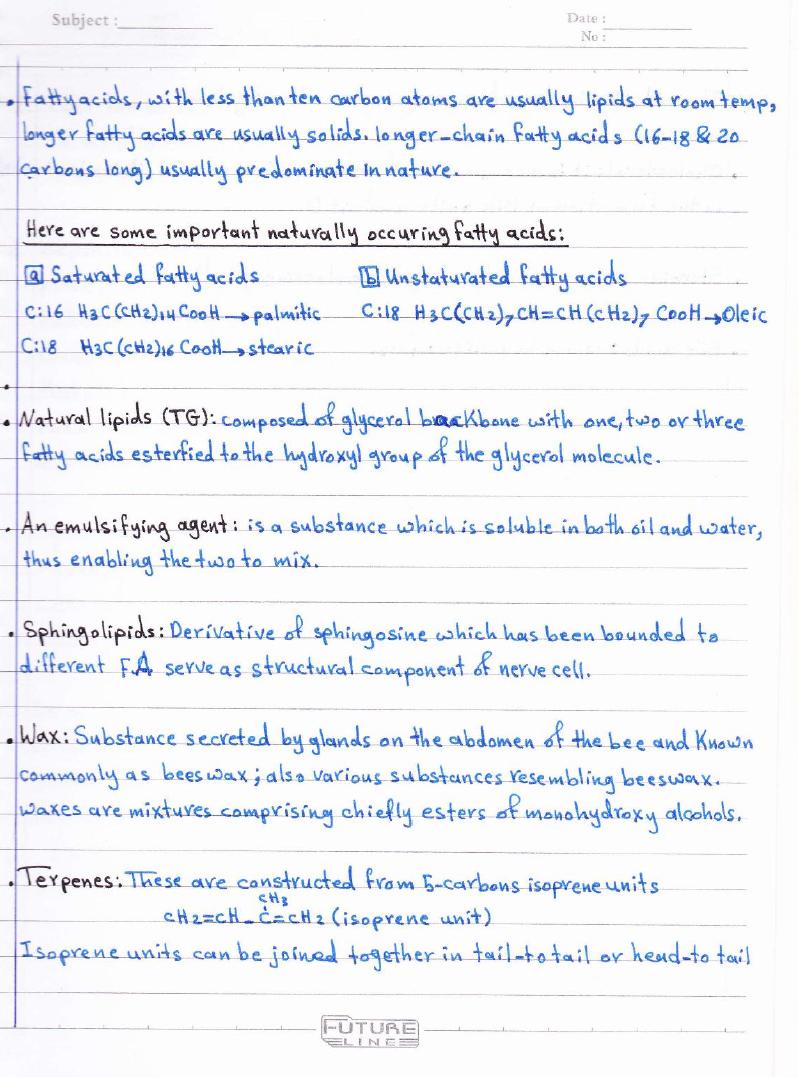 Subject :
Date :
No :
. Fattyacids, with less than ten carbon atoms are usually lipids at room temp,
longer fatty acids are usually solids. longer-chain fatty acids (16-18 & 20
carbons long) usually predominate in nature.
Here are some important naturally occuring fatty acids:
a Saturated fatty acids b Unstaturated fatty acids
C:16 H3C(CH2)14CooH → palmitic C:18 H3C(CH2)7CH=CH(CH2)7 CooH → Oleic
C:18 H3C(CH2)16 CooH → stearic
. Natural lipids (TG): composed of glycerol backbone with one, two or three
fatty acids esterfied to the hydroxyl group of the glycerol molecule.
. An emulsifying agent: is a substance which is soluble in both oil and water,
thus enabling the two to mix.
. Sphingolipids: Derivative of sphingosine which has been bounded to
different F.A serve as structural component of nerve cell.
. Wax: Substance secreted by glands on the abdomen of the bee and Known
commonly as bees wax; also various substances resembling beeswax.
waxes are mixtures comprising chiefly esters of monohydroxy alcohols.
. Terpenes: These are constructed from 5-carbons isoprene units
CH3
CH2=CH-C=CH2 (isoprene unit)
Isoprene units can be joined together in tail-to tail or head-to tail
FUTURE
LINE